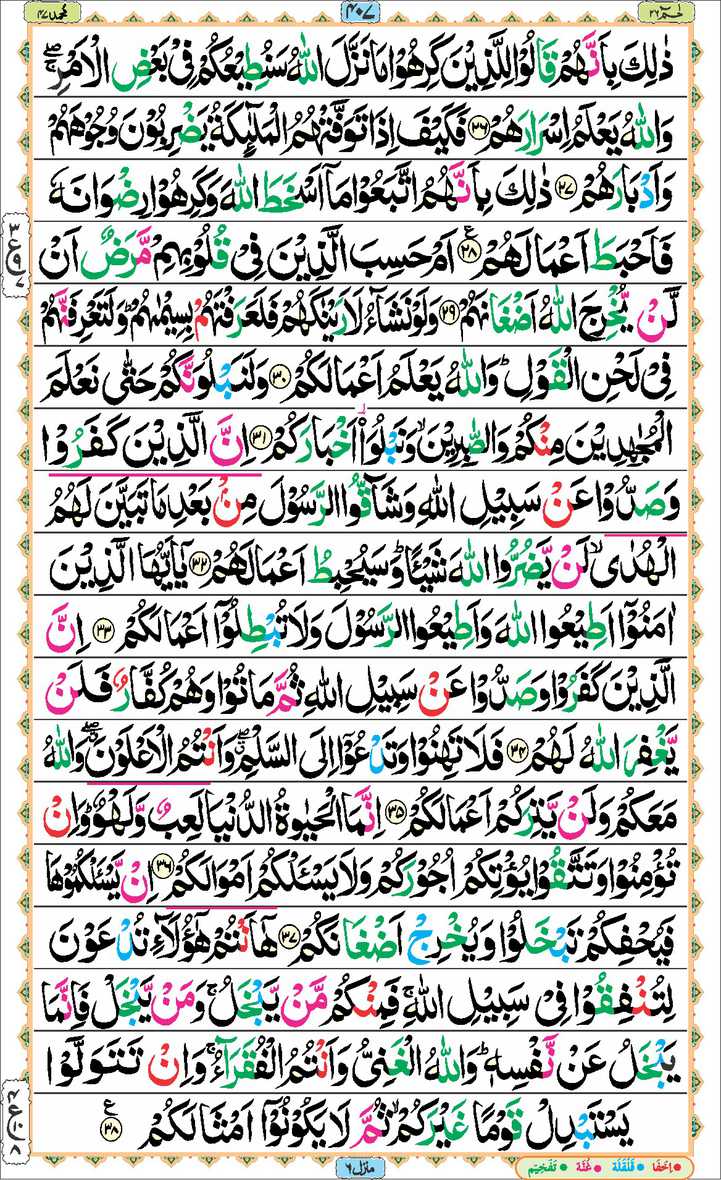 حٰمٓ ٢٦
٤٠٧
محمد ٤٧
ذٰلِكَ بِاَنَّهُمْ قَالُوْا لِلَّذِيْنَ كَرِهُوْا مَا نَزَّلَ اللّٰهُ سَنُطِيْعُكُمْ فِيْ بَعْضِ الْاَمْرِ ۖۚ
وَاللّٰهُ يَعْلَمُ اِسْرَارَهُمْ ﴿٢٦﴾ فَكَيْفَ اِذَا تَوَفَّتْهُمُ الْمَلٰٓئِكَةُ يَضْرِبُوْنَ وُجُوْهَهُمْ
وَاَدْبَارَهُمْ ﴿٢٧﴾ ذٰلِكَ بِاَنَّهُمُ اتَّبَعُوْا مَاۤ اَسْخَطَ اللّٰهَ وَكَرِهُوْا رِضْوَانَهٗ
فَاَحْبَطَ اَعْمَالَهُمْ ﴿٢٨﴾ع اَمْ حَسِبَ الَّذِيْنَ فِيْ قُلُوْبِهِمْ مَّرَضٌ اَنْ
لَّنْ يُّخْرِجَ اللّٰهُ اَضْغَانَهُمْ ﴿٢٩﴾ وَلَوْ نَشَآءُ لَاَرَيْنٰكَهُمْ فَلَعَرَفْتَهُمْ بِسِيْمٰهُمْ ؕ وَلَتَعْرِفَنَّهُمْ
فِيْ لَحْنِ الْقَوْلِ ؕ وَاللّٰهُ يَعْلَمُ اَعْمَالَكُمْ ﴿٣٠﴾ وَلَنَبْلُوَنَّكُمْ حَتّٰى نَعْلَمَ
الْمُجٰهِدِيْنَ مِنْكُمْ وَالصّٰبِرِيْنَ ۙ وَنَبْلُوَا۟ اَخْبَارَكُمْ ﴿٣١﴾ اِنَّ الَّذِيْنَ كَفَرُوْا
وَصَدُّوْا عَنْ سَبِيْلِ اللّٰهِ وَشَآقُّوا الرَّسُوْلَ مِنْۢ بَعْدِ مَا تَبَيَّنَ لَهُمُ
الْهُدٰى ۙ لَنْ يَّضُرُّوا اللّٰهَ شَيْـًٔا ؕ وَسَيُحْبِطُ اَعْمَالَهُمْ ﴿٣٢﴾ يٰۤاَيُّهَا الَّذِيْنَ
اٰمَنُوْۤا اَطِيْعُوا اللّٰهَ وَاَطِيْعُوا الرَّسُوْلَ وَلَا تُبْطِلُوْۤا اَعْمَالَكُمْ ﴿٣٣﴾ اِنَّ
الَّذِيْنَ كَفَرُوْا وَصَدُّوْا عَنْ سَبِيْلِ اللّٰهِ ثُمَّ مَاتُوْا وَهُمْ كُفَّارٌ فَلَنْ
يَّغْفِرَ اللّٰهُ لَهُمْ ﴿٣٤﴾ فَلَا تَهِنُوْا وَتَدْعُوْۤا اِلَى السَّلْمِ ۖۗ وَاَنْتُمُ الْاَعْلَوْنَ ۖۗ وَاللّٰهُ
مَعَكُمْ وَلَنْ يَّتِرَكُمْ اَعْمَالَكُمْ ﴿٣٥﴾ اِنَّمَا الْحَيٰوةُ الدُّنْيَا لَعِبٌ وَّلَهْوٌ ؕ وَاِنْ
تُؤْمِنُوْا وَتَتَّقُوْا يُؤْتِكُمْ اُجُوْرَكُمْ وَلَا يَسْـَٔلْكُمْ اَمْوَالَكُمْ ﴿٣٦﴾ اِنْ يَّسْـَٔلْكُمُوْهَا
فَيُحْفِكُمْ تَبْخَلُوْا وَيُخْرِجْ اَضْغَانَكُمْ ﴿٣٧﴾ هٰۤاَنْتُمْ هٰۤؤُلَآءِ تُدْعَوْنَ
لِتُنْفِقُوْا فِيْ سَبِيْلِ اللّٰهِ ۚ فَمِنْكُمْ مَّنْ يَّبْخَلُ ۚ وَمَنْ يَّبْخَلْ فَاِنَّمَا
يَبْخَلُ عَنْ نَّفْسِهٖ ؕ وَاللّٰهُ الْغَنِيُّ وَاَنْتُمُ الْفُقَرَآءُ ۚ وَاِنْ تَتَوَلَّوْا
يَسْتَبْدِلْ قَوْمًا غَيْرَكُمْ ۙ ثُمَّ لَا يَكُوْنُوْۤا اَمْثَالَكُمْ ﴿٣٨﴾ع
منزل ٦
اِخفا قلقلة غنّة تفخيم